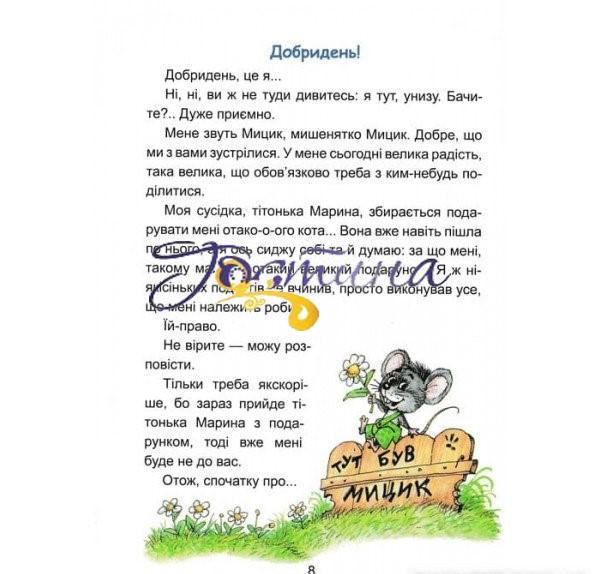 Добридень!
Добридень, це я...
Ні, ні, ви ж не туди дивитесь: я тут, унизу. Бачи-
те?.. Дуже приємно.
Мене звуть Мицик, мишенятко Мицик. Добре, що
ми з вами зустрілися. У мене сьогодні велика радість,
така велика, що обов'язково треба з ким-небудь по-
ділитися.
Моя сусідка, тітонька Марина, збирається пода-
рувати мені отако-о-ого кота... Вона вже навіть пішла
по нього, а я ось сиджу собі та й думаю: за що мені,
такому отакий великий Я ж ні-
вчинив, просто виконував усе,
що мені належить
Їй-право.
Не вірите — можу роз-
повісти.
Тільки треба якскорі-
ше, бо зараз прийде ті-
тонька Марина з пода-
рунком, тоді вже мені
буде не до вас.
Отож, спочатку про...
ТУТ БУВ
МИЦИК
8
Гостина